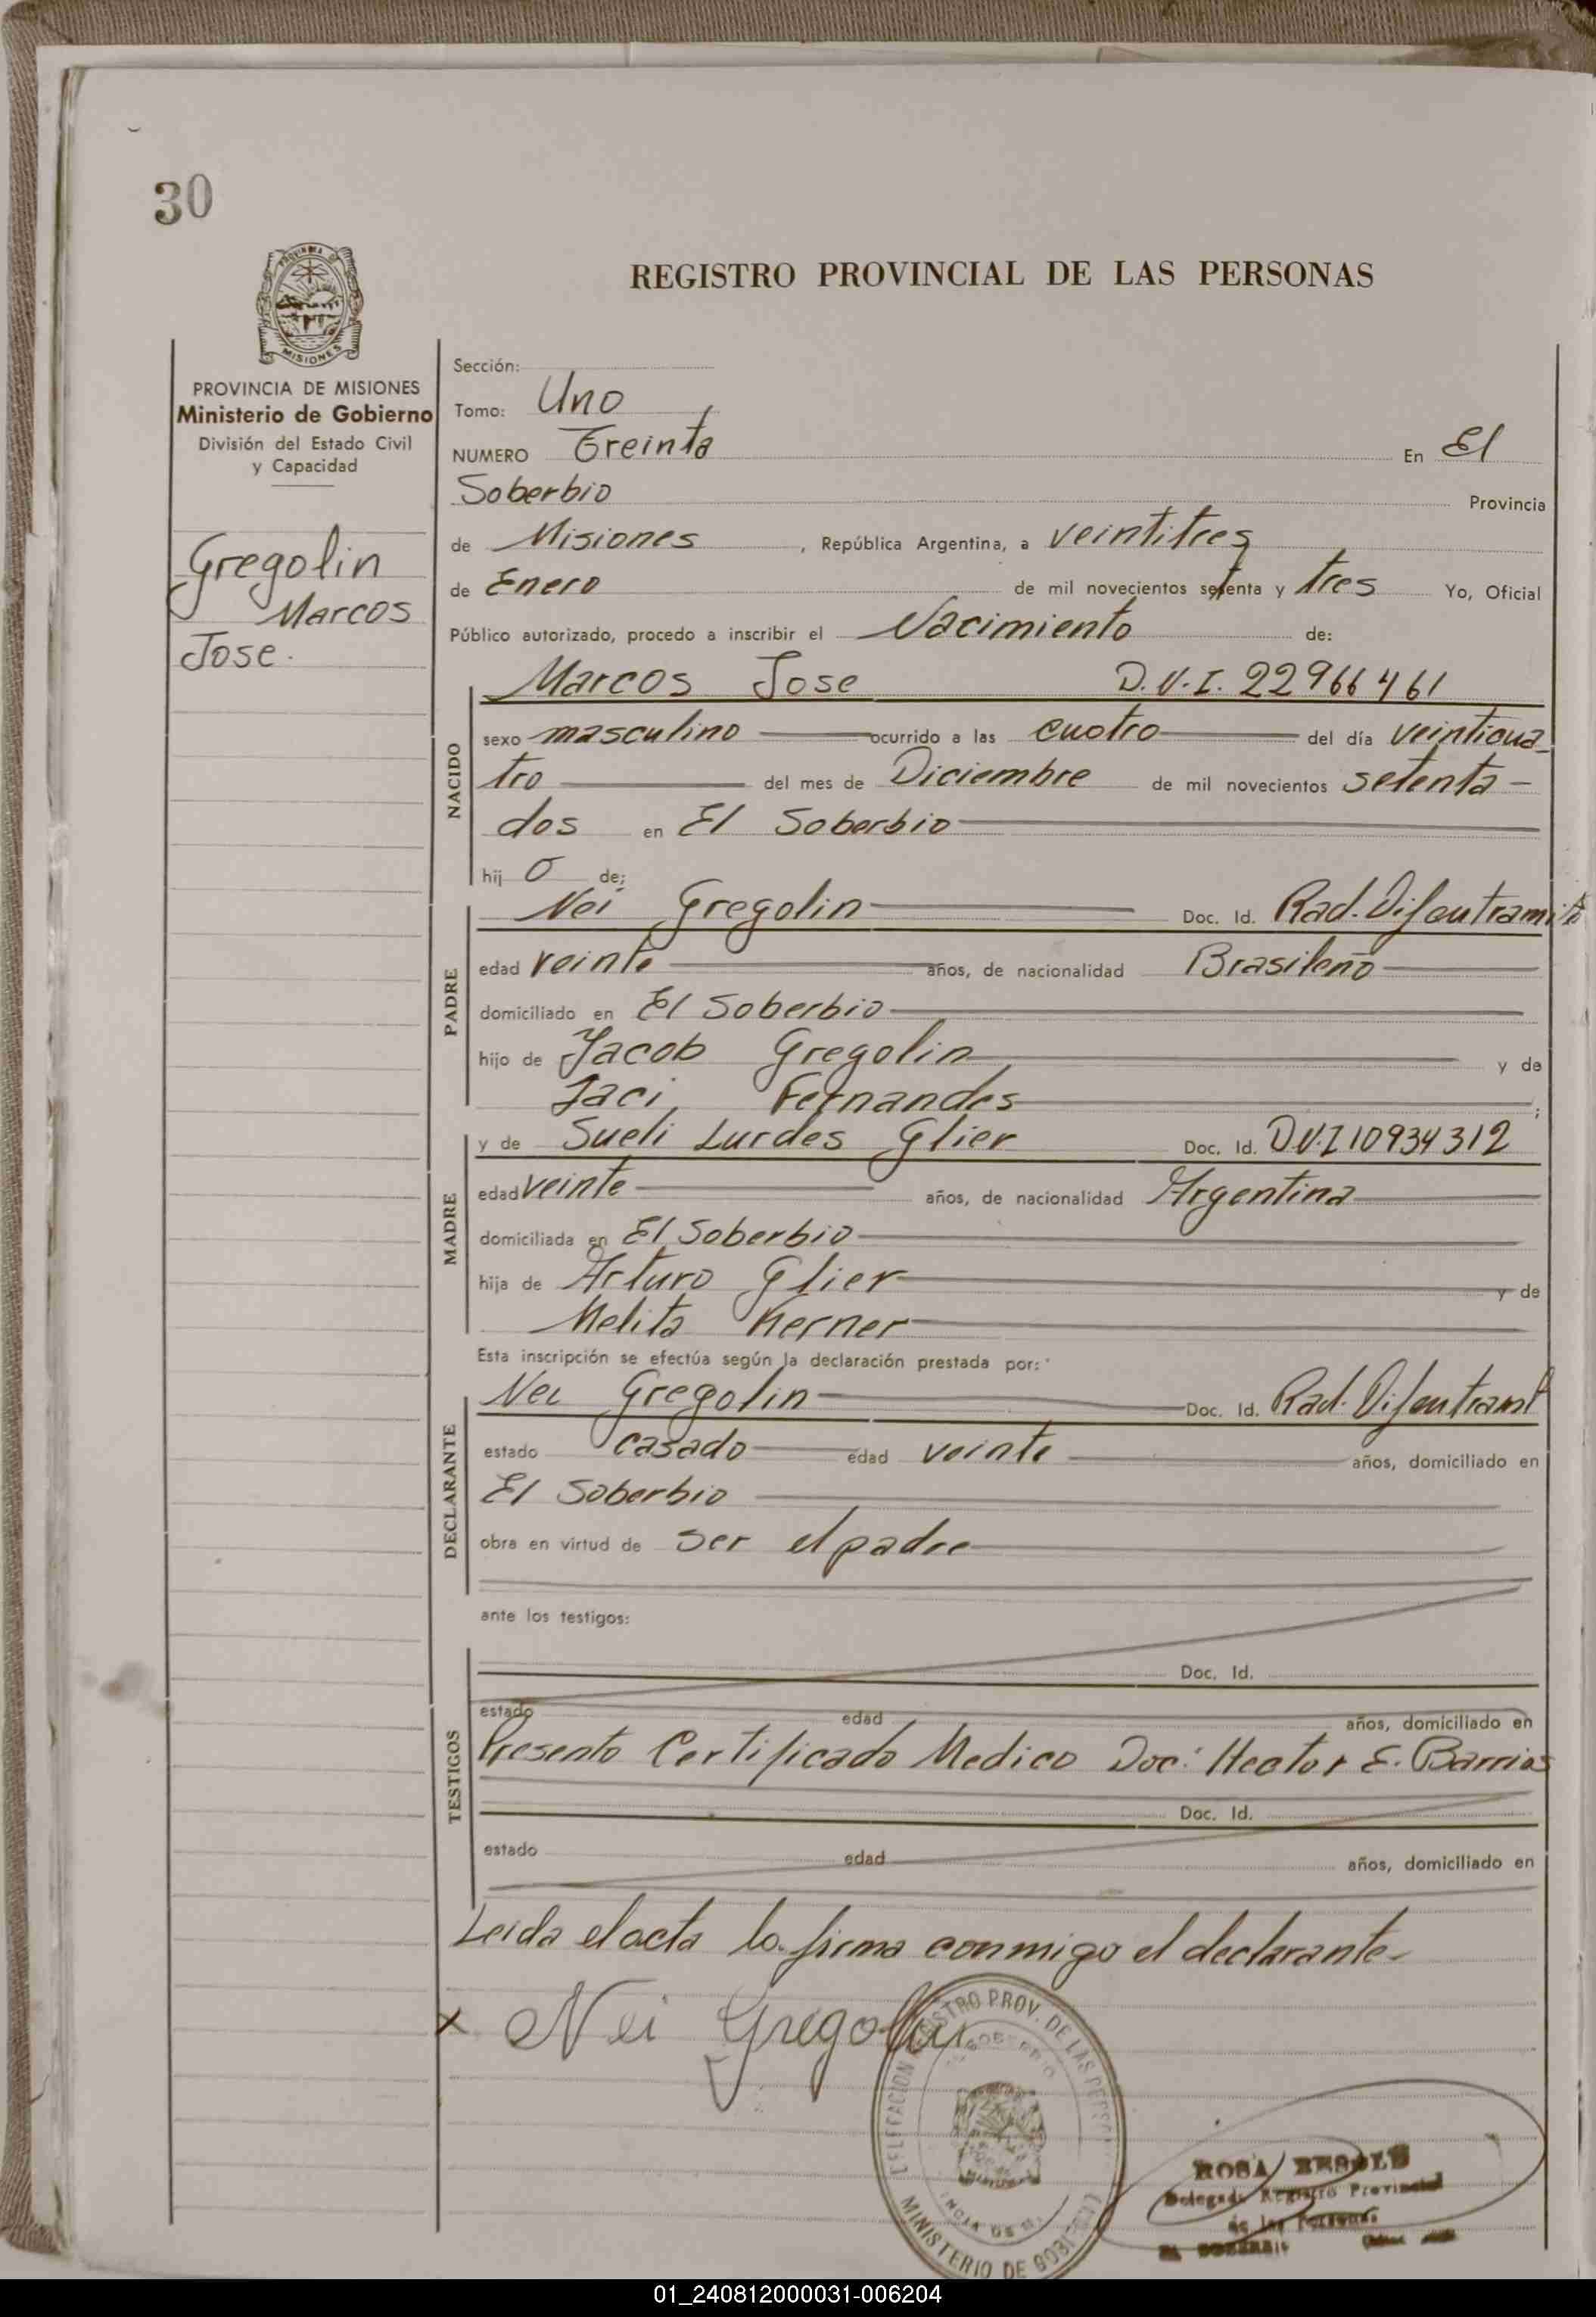 30
REGISTRO PROVINCIAL DE LAS PERSONAS
PROVINCIA
MISIONES
PROVINCIA DE MISIONES
Ministerio de Gobierno
División del Estado Civil
y Capacidad
Gregolin
Marcos
Jose.
Sección:
Tomo: Uno
NUMERO Treinta En El
Soberbio Provincia
de Misiones, República Argentina, a veintitres
de Enero de mil novecientos setenta y tres Yo, Oficial
Público autorizado, procedo a inscribir el Nacimiento de:
NACIDO
Marcos Jose D.N.I. 22966461
sexo masculino ocurrido a las cuatro del día veinticua
tro del mes de Diciembre de mil novecientos setenta
dos en El Soberbio
hij o de:
PADRE
Nei Gregolin Doc. Id. Rad. Dif. en tramite
edad veinte años, de nacionalidad Brasileño
domiciliado en El Soberbio
hijo de Jacob Gregolin y de
Jaci Fernandes;
MADRE
y de Sueli Lurdes Glier Doc. Id. D.N.I 10934312
edad veinte años, de nacionalidad Argentina
domiciliada en El Soberbio
hija de Arturo Glier y de
Melita Kerner
Esta inscripción se efectúa según la declaración prestada por:
DECLARANTE
Nei Gregolin Doc. Id. Rad. Dif. en tramt
estado casado edad veinte años, domiciliado en
El Soberbio
obra en virtud de ser el padre
ante los testigos:
TESTIGOS
Doc. Id.
estado edad años, domiciliado en
Presento Certificado Medico Doc: Hector E. Barrios
Doc. Id.
estado edad años, domiciliado en
Leida el acta la firma conmigo el declarante.
x Nei Gregolin
DELEGACION REGISTRO PROV. DE LAS PERSONAS
MINISTERIO DE GOBIERNO
ROSA
Delegada Registro Provincial
de las Personas
EL SOBERBIO
01_240812000031-006204